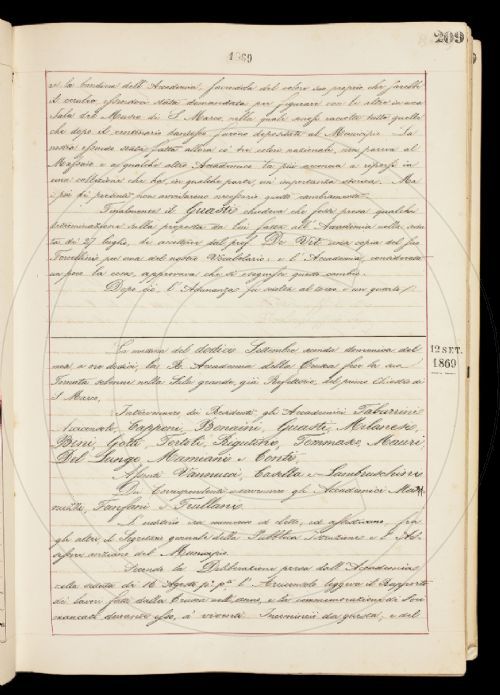 209
1869
la bandiera dell'Accademia facendola del colore suo proprio che sarebbe
il ceruleo, essendoci stata domandata per figurare con le altre in una
Sala del Museo di S. Marco, nella quale sono raccolte tutte quelle
che dopo il centenario dantesco furono depositate al Municipio. La
nostra essendo stata fatta allora co' tre colori nazionali, non pareva al
e a qualche altro Accademico la più acconcia a
una collezione che ha, in qualche parte, un'importanza storica. Ma
i più de' presenti non avvisarono necessario questo cambiamento.
Finalmente il Guasti chiedeva che fosse presa qualche
determinazione sulla proposta da lui fatta all'Accademia nella
di 27 luglio, di accettare dal prof. De Vit una copia del suo
Forcellini per una del nostro Vocabolario: e l'Accademia, considerata
un poco la cosa, approvava che si eseguisse questo cambio.
Dopo ciò, l'Adunanza fu sciolta al tocco e un quarto.
12 SET.
1869
La mattina del dodici Settembre, seconda domenica del
mese, a ore dodici, la R. Accademia della Crusca fece la sua
Tornata solenne nella Sala grande, già Refettorio, del primo Chiostro di
S. Marco.
Intervennero dei Residenti gli Accademici Tabarrini
Capponi, Bencini, Guasti, Milanesi,
Bini, Gotti, Tortoli, Rigutini, Tommaseo, Mauri,
Del Lungo, Mamiani e Conti.
Assenti Vannucci, Casella e Lambruschini.
De' Corrispondenti erano gli Accademici
Fanfani e Trullani.
L'uditorio era numeroso ed eletto, ed assistevano, fra
gli altri, il Segretario generale della Pubblica Istruzione e l'
del Municipio.
Secondo la Deliberazione presa dall'Accademia
nella seduta di 16 Agosto l'Arciconsolo leggeva il Rapporto
dei lavori fatti dalla Crusca nell'anno, e la commemorazione di
mancati durante esso, a vivere. Incominciò